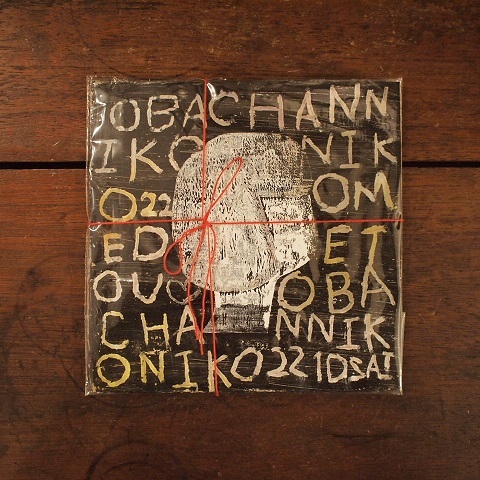 OBACHANN
IKO NIK
O22 OM
ED ET
OUO OBA
CHA NNIK
ONIKO221DSAI